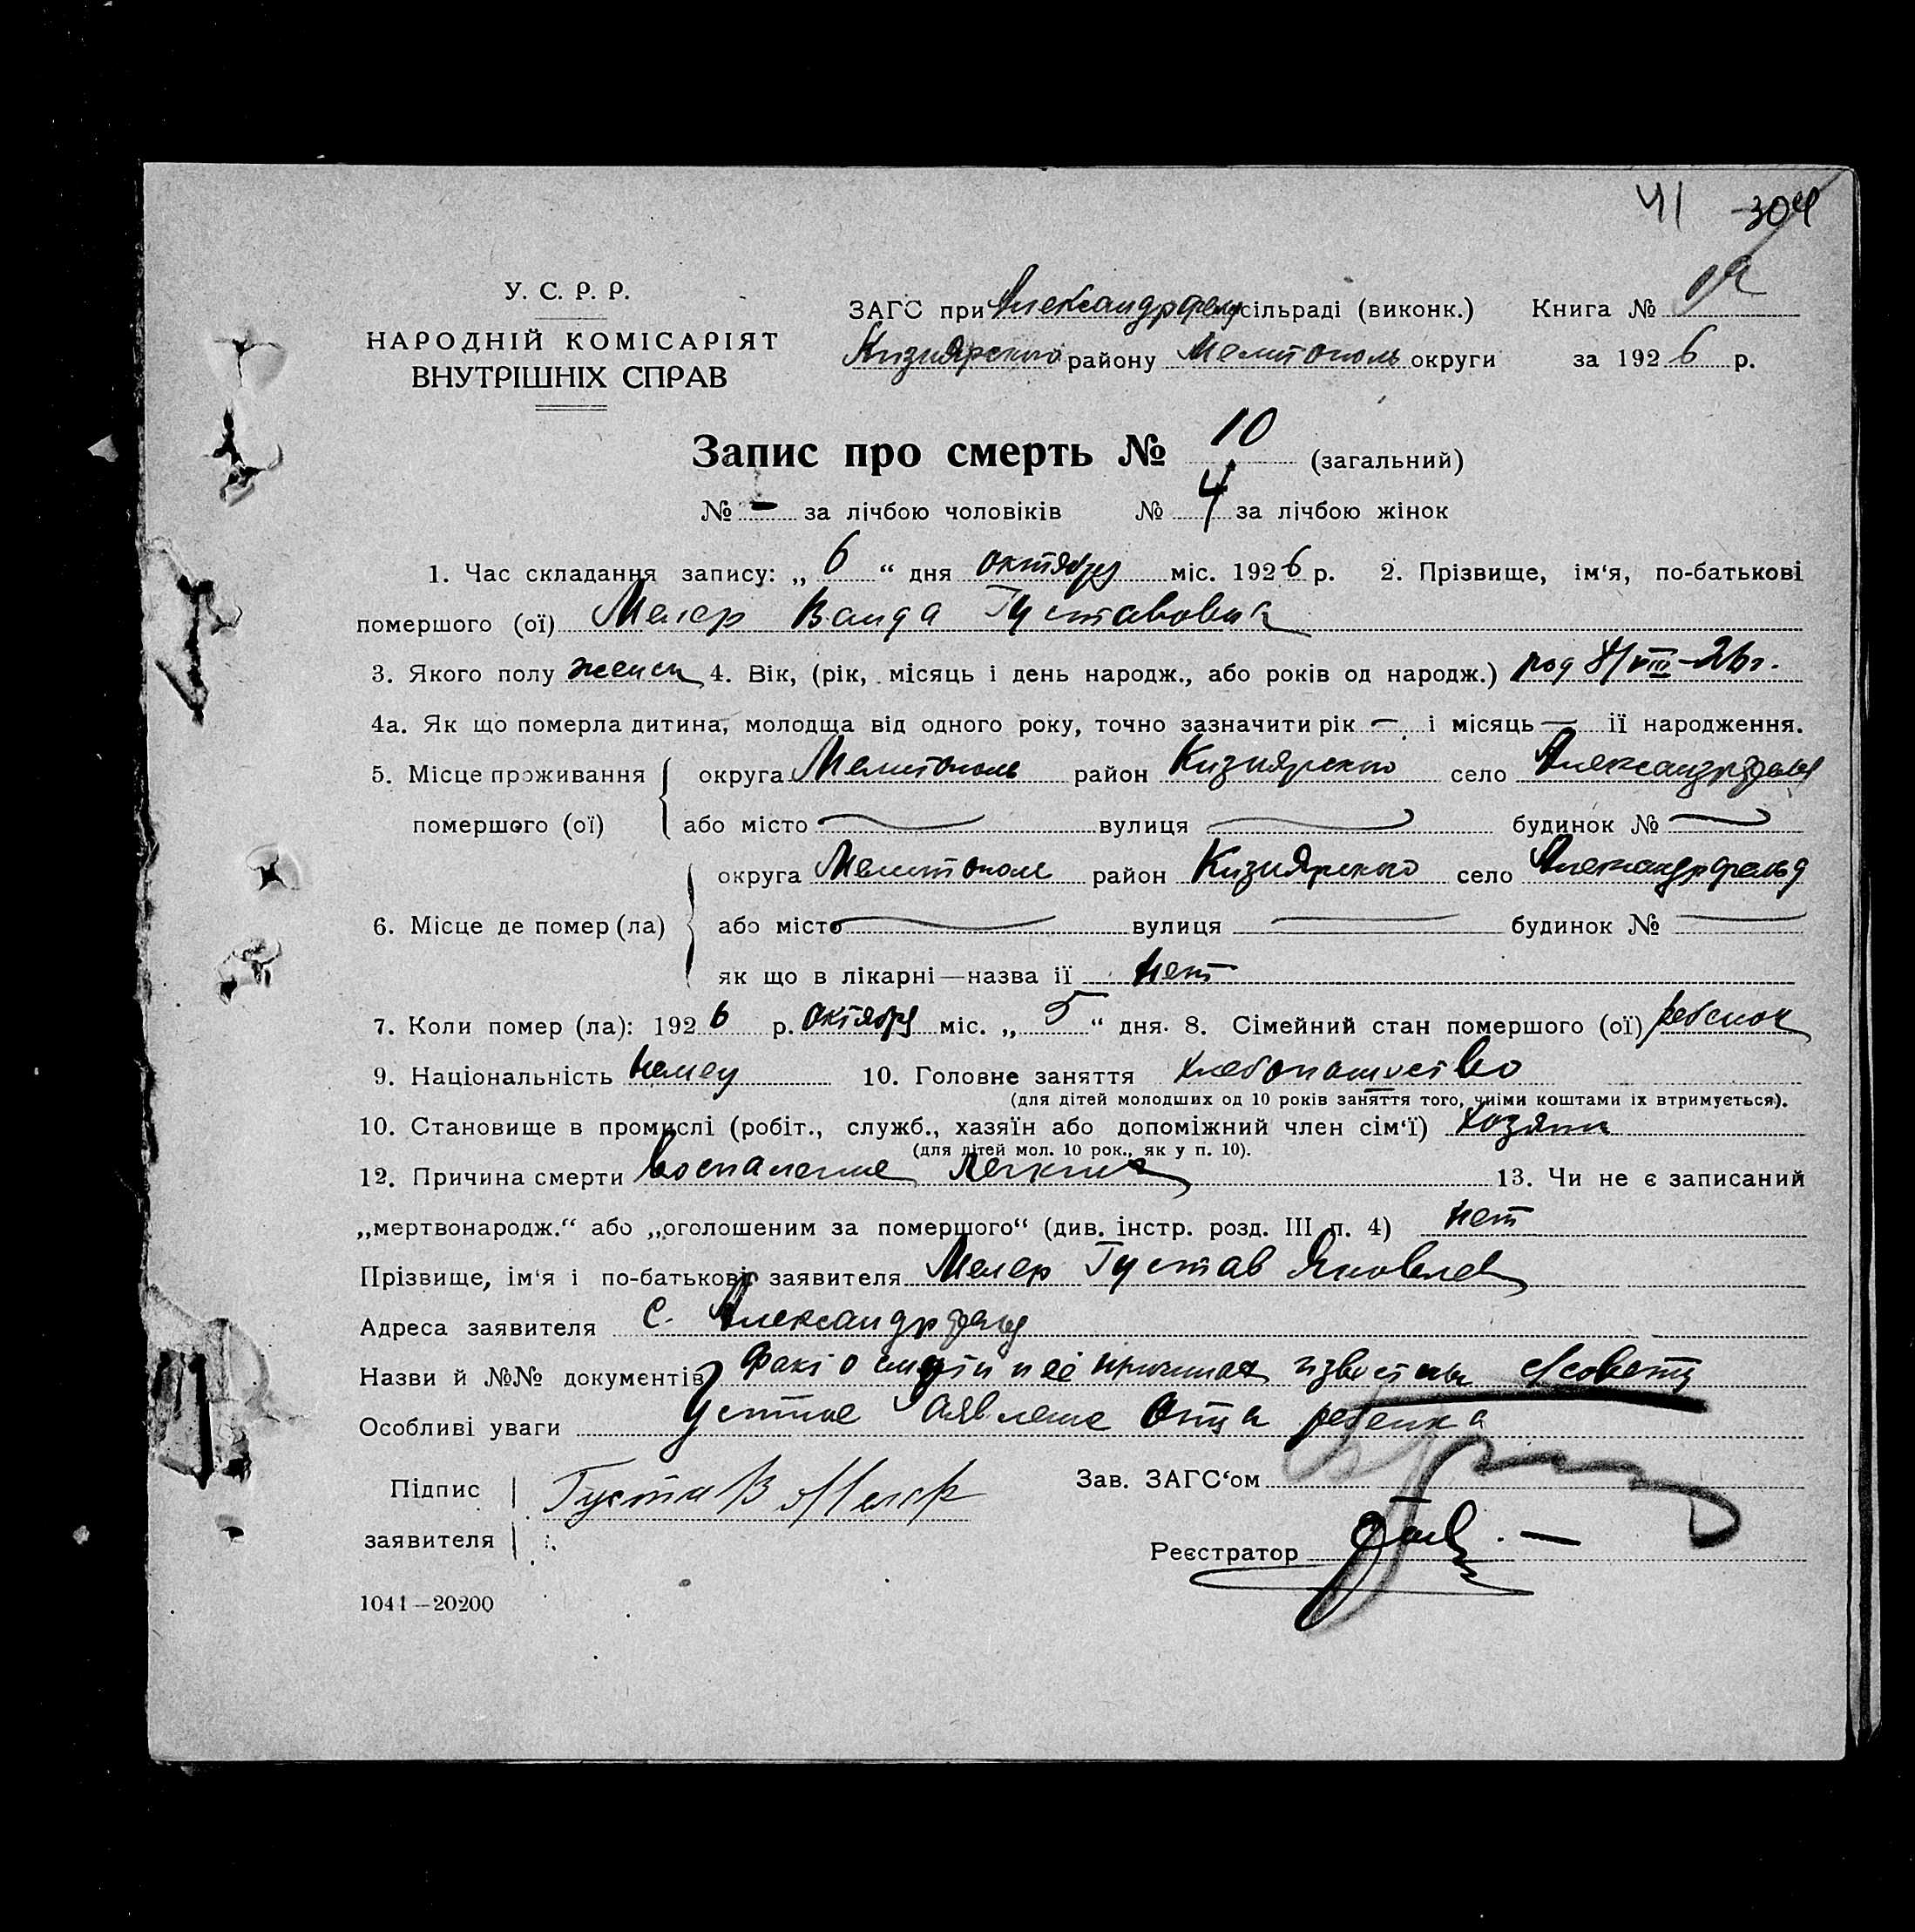 41 304
У. С. Р. Р.
НАРОДНІЙ КОМІСАРІЯТ
ВНУТРІШНІХ СПРАВ
ЗАГС при Александрфельд сільраді (виконк.) Книга №
Кизиярского району Мелитополь округи за 1926 р.
Запис про смерть № 10 (загальний)
№ - за лічбою чоловіків № 4 за лічбою жінок
1. Час складання запису: „6“ дня октября міс. 1926 р. 2. Прізвище, ім‘я, по-батькові
помершого (ої) Мелер Ванда Густавовна
3. Якого полу женск 4. Вік, (рік, місяць і день народж., або років од народж.) род 8/VIII-26 г.
4а. Як що померла дитина, молодща від одного року, точно зазначити рік — і місяць — її народження.
5. Місце проживання помершого (ої) округа Мелитополь район Кизиярского село Александрфельд
або місто — вулиця — будинок № —
6. Місце де помер (ла) округа Мелитополь район Кизиярского село Александрфельд
або місто — вулиця — будинок № —
як що в лікарні—назва її нет
7. Коли помер (ла): 1926 р. октября міс. „5“ дня. 8. Сімейний стан помершого (ої) ребенок
9. Національність немец 10. Головне заняття хлебопашество
(для дітей молодших од 10 років заняття того, чиїми коштами їх втримується).
10. Становище в промислі (робіт., служб., хазяїн або допоміжний член сім‘ї) хозяин
(для дітей мол. 10 рок., як у п. 10).
12. Причина смерти воспаление легких 13. Чи не є записаний
„мертвонародж.“ або „оголошеним за помершого“ (див. інстр. розд. III п. 4) нет
Прізвище, ім‘я і по-батькові заявителя Мелер Густав Яковлев
Адреса заявителя с. Александрфельд
Назви й №№ документів Факт о смерти и её причинах известны с/совету
Особливі уваги Устное заявление отца ребенка
Підпис заявителя Густав Мелер
Зав. ЗАГС‘ом
Реєстратор
1041—20200